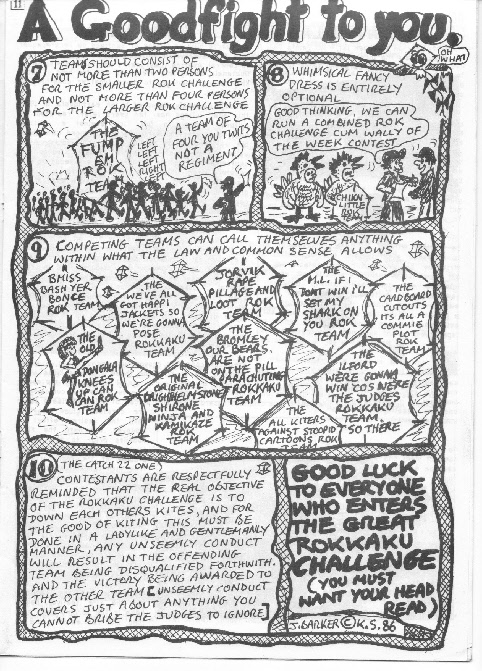 11
A Goodfight to you.
OH
WHAT
7 TEAM SHOULD CONSIST OF
NOT MORE THAN TWO PERSONS
FOR THE SMALLER ROK CHALLENGE
AND NOT MORE THAN FOUR PERSONS
FOR THE LARGER ROK CHALLENGE
THE
FUMP
EM
ROK
TEAM
LEFT
LEFT
LEFT
RIGHT
A TEAM OF
FOUR YOU TWITS
NOT A
REGIMENT
8 WHIMSICAL FANCY
DRESS IS ENTIRELY
OPTIONAL
GOOD THINKING, WE CAN
RUN A COMBINED ROK
CHALLENGE CUM WALLY OF
THE WEEK CONTEST
LITTLE
ROK
9 COMPETING TEAMS CAN CALL THEMSELVES ANYTHING
WITHIN WHAT THE LAW AND COMMON SENSE ALLOWS
BMISS
BASH YER
BONCE
ROK TEAM
THE
WE'VE ALL
GOT HAPPI
JACKETS SO
WE'RE GONNA
POSE
ROKKAKU
TEAM
JORVIK
RAPE
PILLAGE AND
LOOT ROK
TEAM
THE
M.L. IF I
DONT WIN I'LL
SET MY
SHARK ON
YOU ROK
TEAM
THE
CARDBOARD
CUTOUTS
ITS ALL A
COMMIE
PLOT
ROK
TEAM
THE
OLD
DONGALA
KNEES
UP CAN
CAN ROK
TEAM
THE
ORIGINAL
SHIRONE
NINJA AND
KAMIKAZE
ROK
TEAM
THE
BROMLEY
OUR BEARS
ARE NOT
ON THE PILL
PARACHUTING
ROKKAKU
TEAM
THE
ALL KITERS
AGAINST STOOPID
CARTOONS ROK
TEAM
THE
ILFORD
WE'RE GONNA
WIN COS WE'RE
THE JUDGES
ROKKAKU
TEAM
SO THERE
10 (THE CATCH 22 ONE)
CONTESTANTS ARE RESPECTFULLY
REMINDED THAT THE REAL OBJECTIVE
OF THE ROKKAKU CHALLENGE IS TO
DOWN EACH OTHERS KITES, AND FOR
THE GOOD OF KITING THIS MUST BE
DONE IN A LADYLIKE AND GENTLEMANLY
MANNER, ANY UNSEEMLY CONDUCT
WILL RESULT IN THE OFFENDING
TEAM BEING DISQUALIFIED FORTHWITH.
AND THE VICTORY BEING AWARDED TO
THE OTHER TEAM [UNSEEMLY CONDUCT
COVERS JUST ABOUT ANYTHING YOU
CANNOT BRIBE THE JUDGES TO IGNORE]
GOOD LUCK
TO EVERYONE
WHO ENTERS
THE GREAT
ROKKAKU
CHALLENGE
(YOU MUST
WANT YOUR HEAD
READ)
J. BARKER © K.S. 86